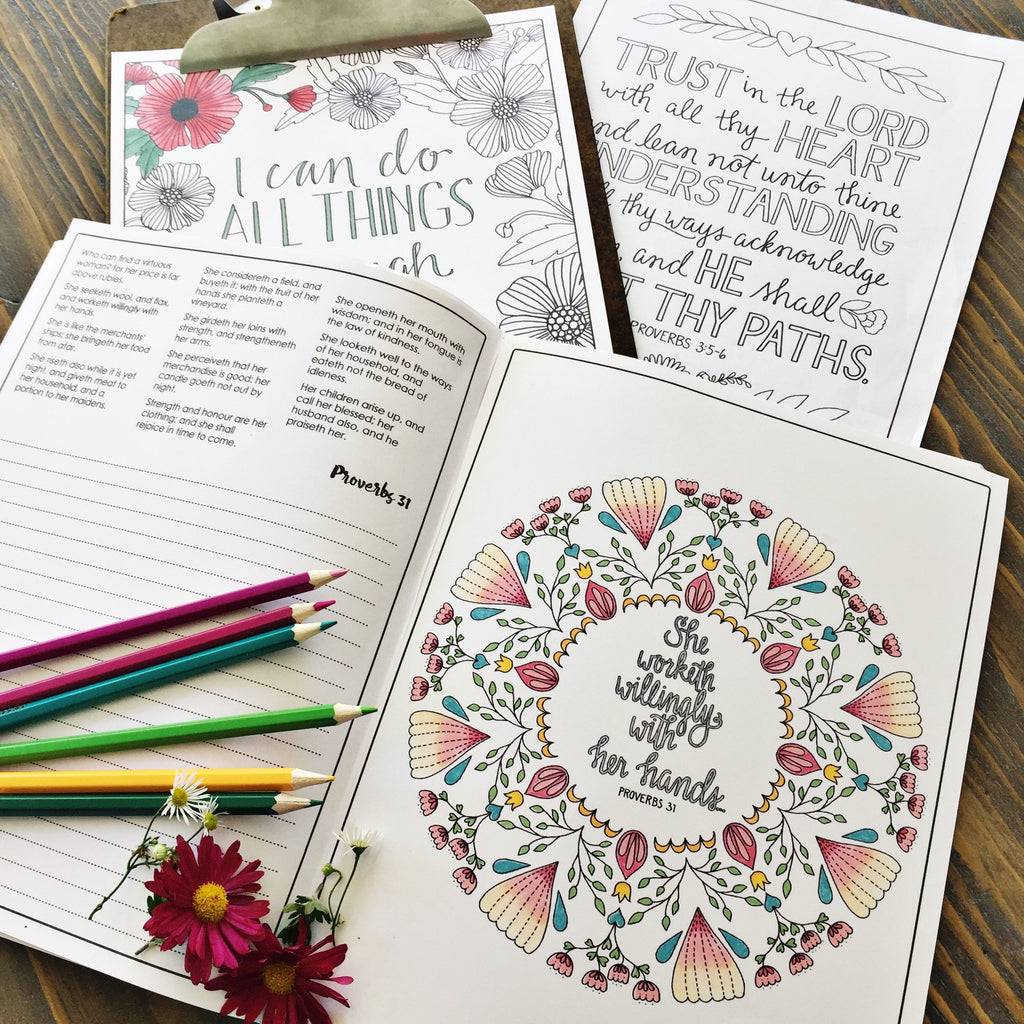 I can do
ALL THINGS
TRUST in the LORD
with all thy HEART
and lean not unto thine
UNDERSTANDING
thy ways acknowledge
and HE shall
THY PATHS.
PROVERBS 3:5-6
Who can find a virtuous
woman? for her price is far
above rubies.
She seeketh wool, and flax,
and worketh willingly with
her hands.
She is like the merchants'
ships; she bringeth her food
from afar.
She riseth also while it is yet
night, and giveth meat to
her household, and a
portion to her maidens.
She considereth a field, and
buyeth it: with the fruit of her
hands she planteth a
vineyard.
She girdeth her loins with
strength, and strengtheneth
her arms.
She perceiveth that her
merchandise is good: her
candle goeth not out by
night.
Strength and honour are her
clothing; and she shall
rejoice in time to come.
She openeth her mouth with
wisdom; and in her tongue is
the law of kindness.
She looketh well to the ways
of her household, and
eateth not the bread of
idleness.
Her children arise up, and
call her blessed; her
husband also, and he
praiseth her.
Proverbs 31
She
worketh
willingly
with
her hands...
PROVERBS 31